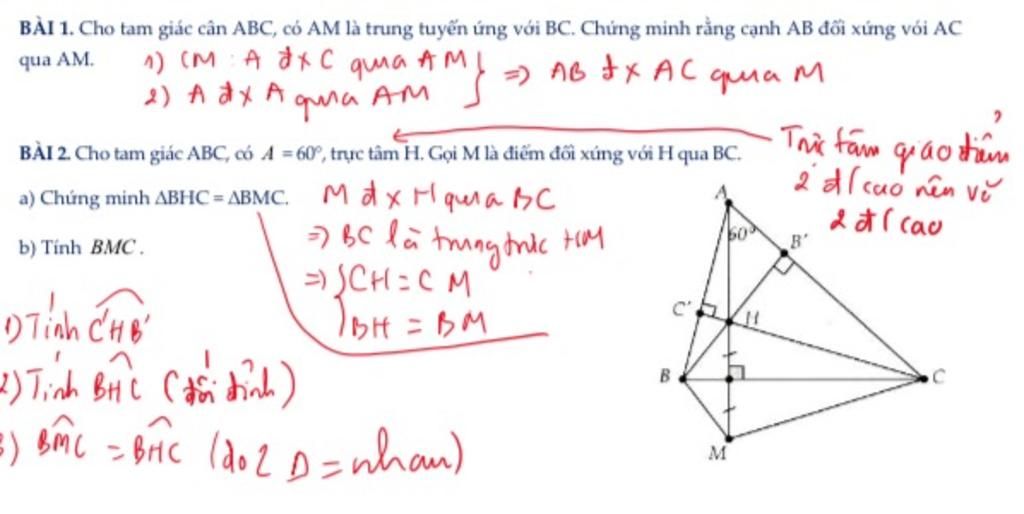 BÀI 1. Cho tam giác cân ABC, có AM là trung tuyến ứng với BC. Chứng minh rằng cạnh AB đối xứng với AC
qua AM.
1) CM : A đx C qua AM
2) A đx A qua AM
=> AB đx AC qua M
BÀI 2. Cho tam giác ABC, có A = 60°, trực tâm H. Gọi M là điểm đối xứng với H qua BC.
Trực tâm giao điểm
2 đ/cao nên vẽ
2 đ/cao
a) Chứng minh ΔBHC = ΔBMC.
M đx H qua BC
=> BC là trung trực HM
=> { CH = CM
BH = BM
b) Tính BMC .
1) Tính C'HB'
2) Tính BHC (đối đỉnh)
3) BMC = BHC (do 2 Δ = nhau)
A
60°
B'
C'
H
B
C
M